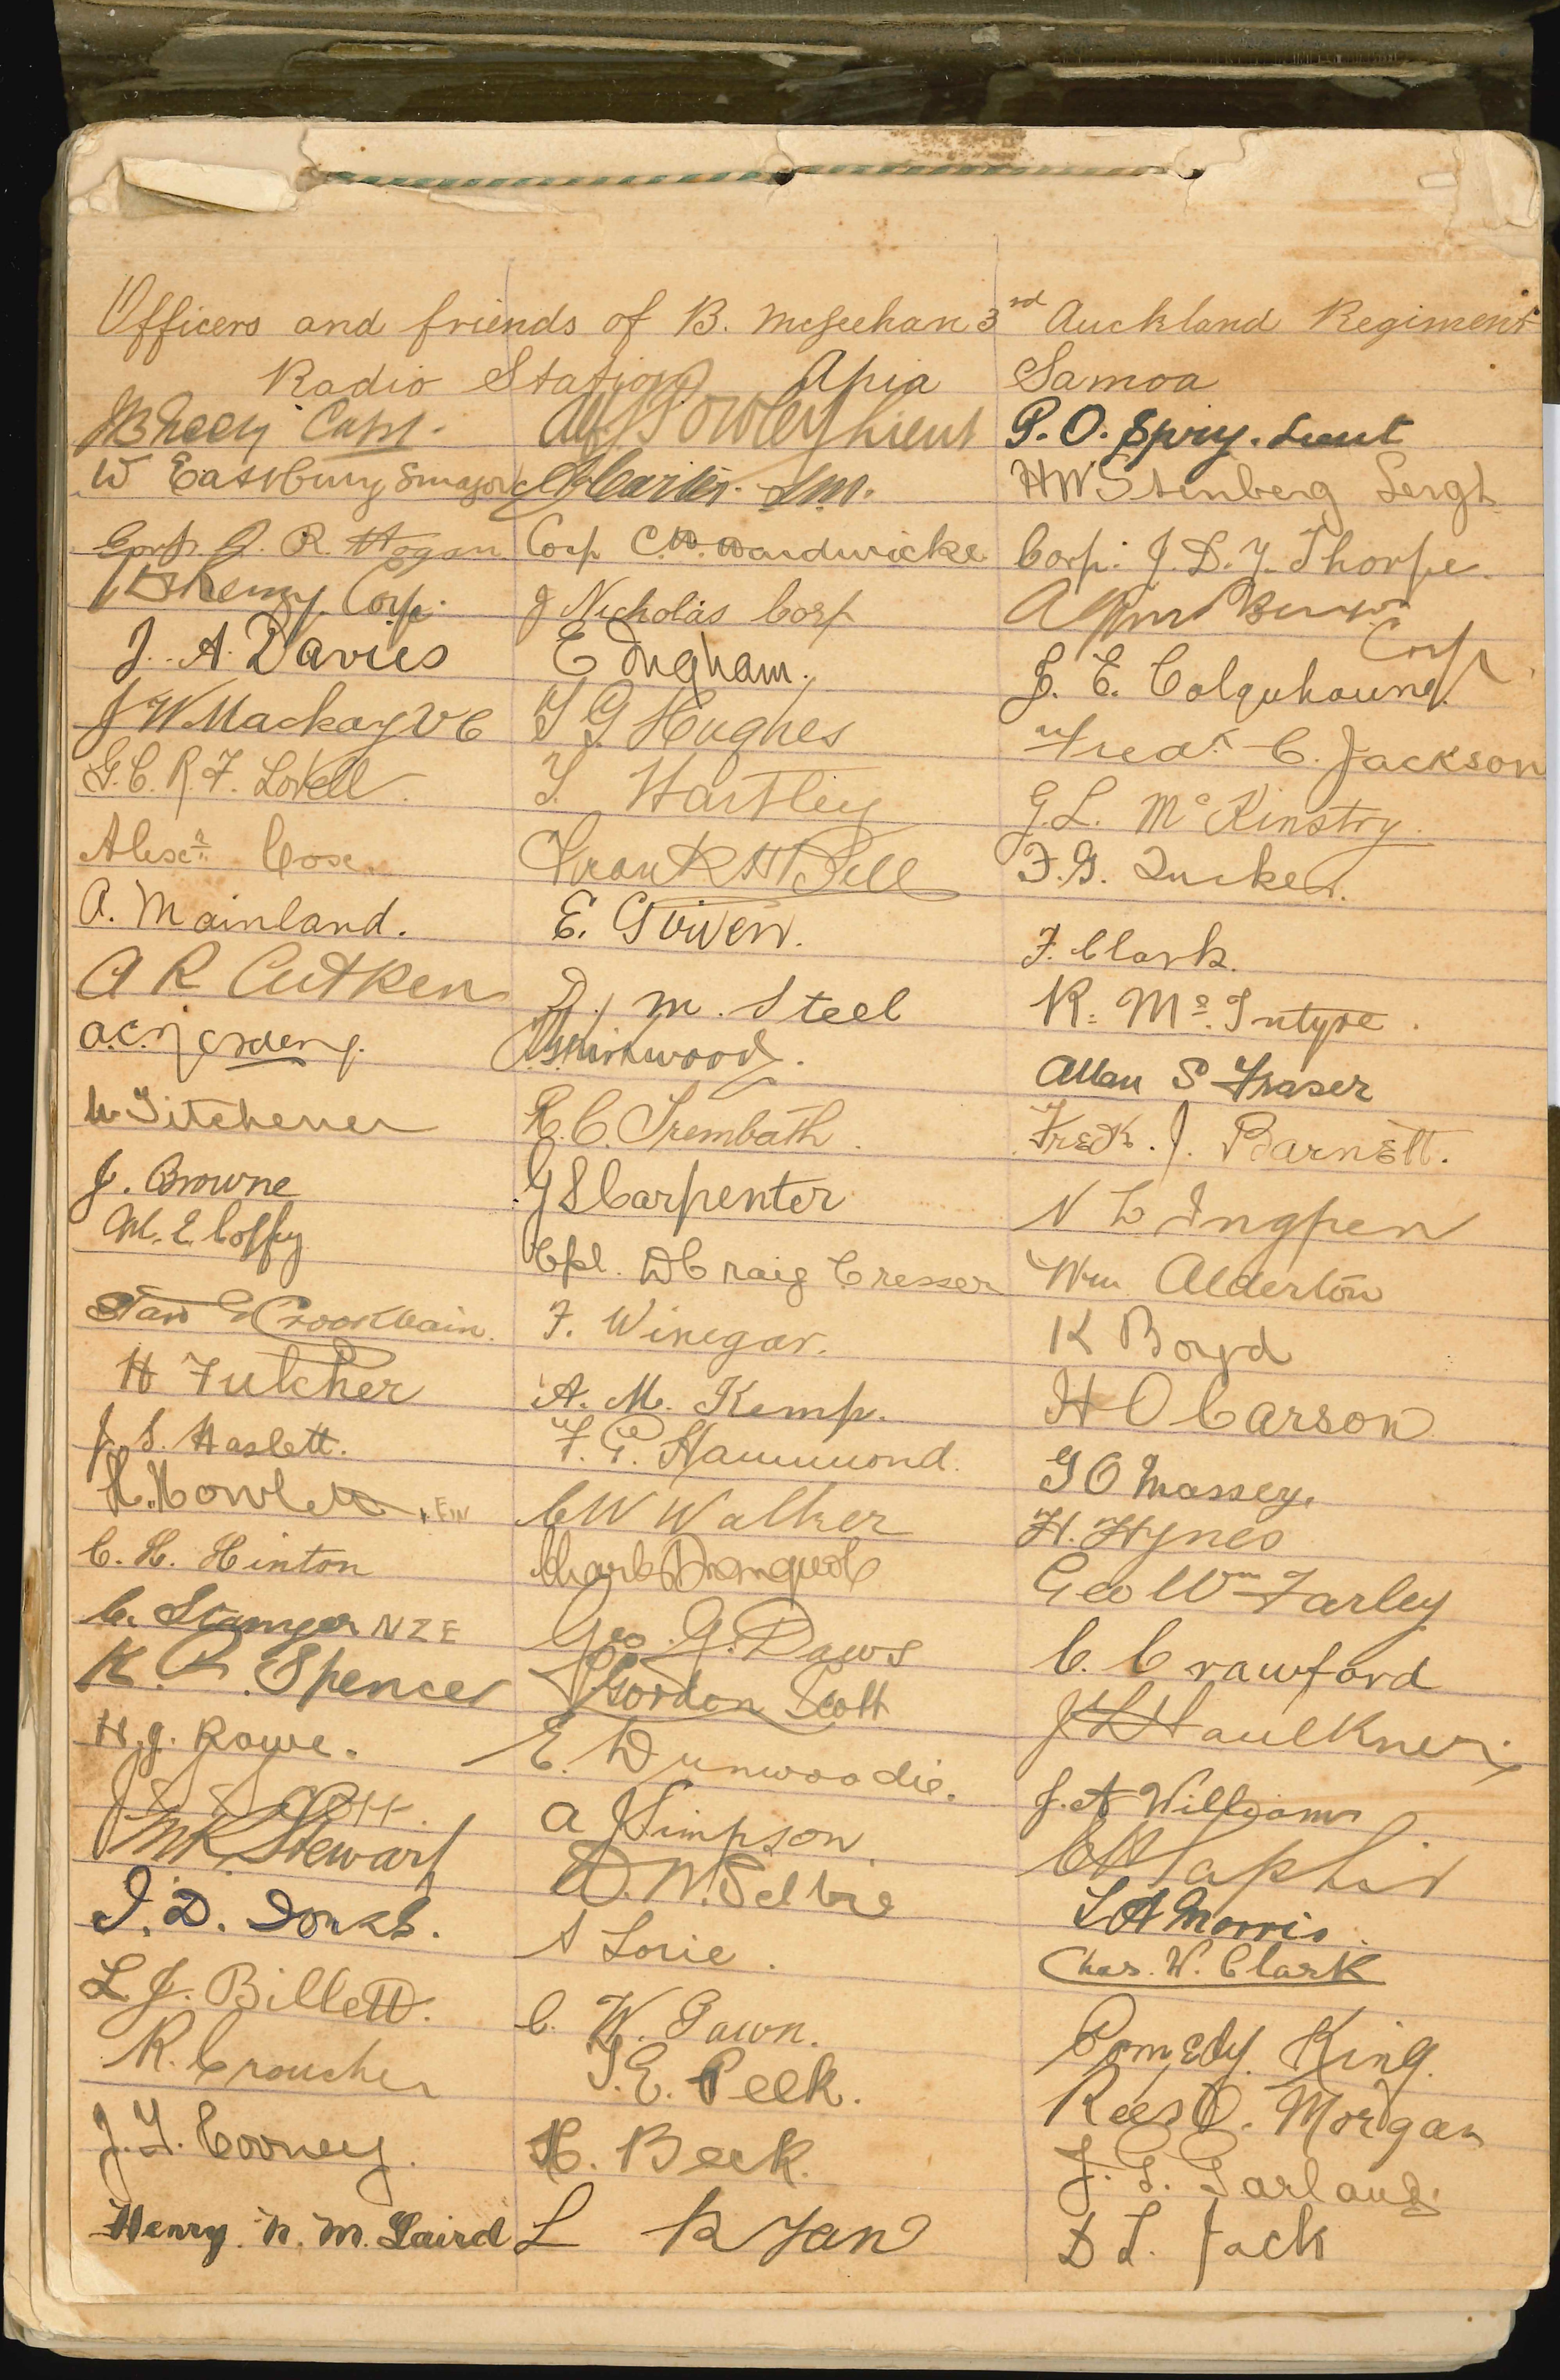 Officers and friends of B. McGeehan 3rd Auckland Regiment
Radio Station Apia Samoa
Capt.
W Eastbury S major
Corp. J. R. Hogan
Henry. Corp.
J. A. Davies
J W Mackay V C
G. C. R. F. Lovell.
Alexr. Cox.
A. Mainland.
A R Aitken
W. Titchener
J. Browne
M. E. Coffey
Stan G Crookbain.
H Fulcher
J. S. Haslett.
H. Howlett
C. H. Hinton
C. Stanger NZE
K. R. Spencer
H. J. Rowe.
J Scott.
Stewart
J. D. Jonas.
L. J. Billett.
R. Croucher
J. T. Cooney.
Henry. N. M. Laird
Powley Lieut
S.M.
Corp C. W. Wardwicke
J Nicholas Corp
E Ingham.
T G Hughes
T. Hartley
Frank H Bell
E. Given.
D. M. Steel
Kirkwood.
R. C. Trembath.
G S Carpenter
Cpl. D Craig Cresser
F. Winegar.
A. M. Kemp.
F. G. Hammond.
C W Walker
Geo. G. Daws
Gordon Scott
E. Dunwoodie.
A J Simpson.
D. W. Selbie
S Lorie.
C. W. Gawn.
T. E. Peek.
H. Beck.
L Ryan
P. O. Spry. Lieut
H W Stenberg Sergt.
Corp. J. D. Y. Thorpe.
Corp
J. E. Colquhoun.
Fredk C. Jackson
G. L. McKinstry.
F. G. Tucker.
F. Clark.
R. McIntyre.
Allan S Fraser
Fredk. J. Barnett.
N L Ingpen
Wm Alderton
K Boyd
H O Carson
G O Massey.
H. Hynes
Geo Wm Farley
C. Crawford
Faulkner.
J. A Williams
Taplin
L A Morris.
Chas. W. Clark
Comedy King.
Rees O. Morgan
J. G. Garland.
D L. Jack